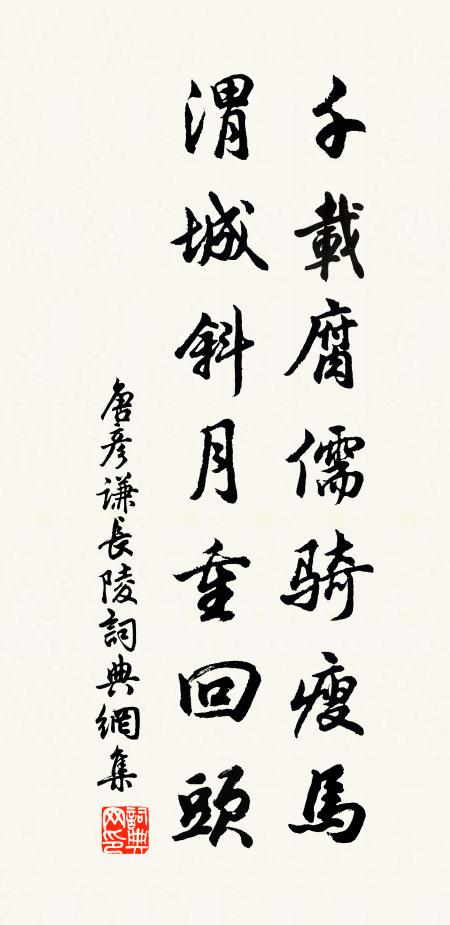 千載腐儒騎瘦馬
渭城斜月重回頭
唐彥謙長陵詞典網集
詞典網印